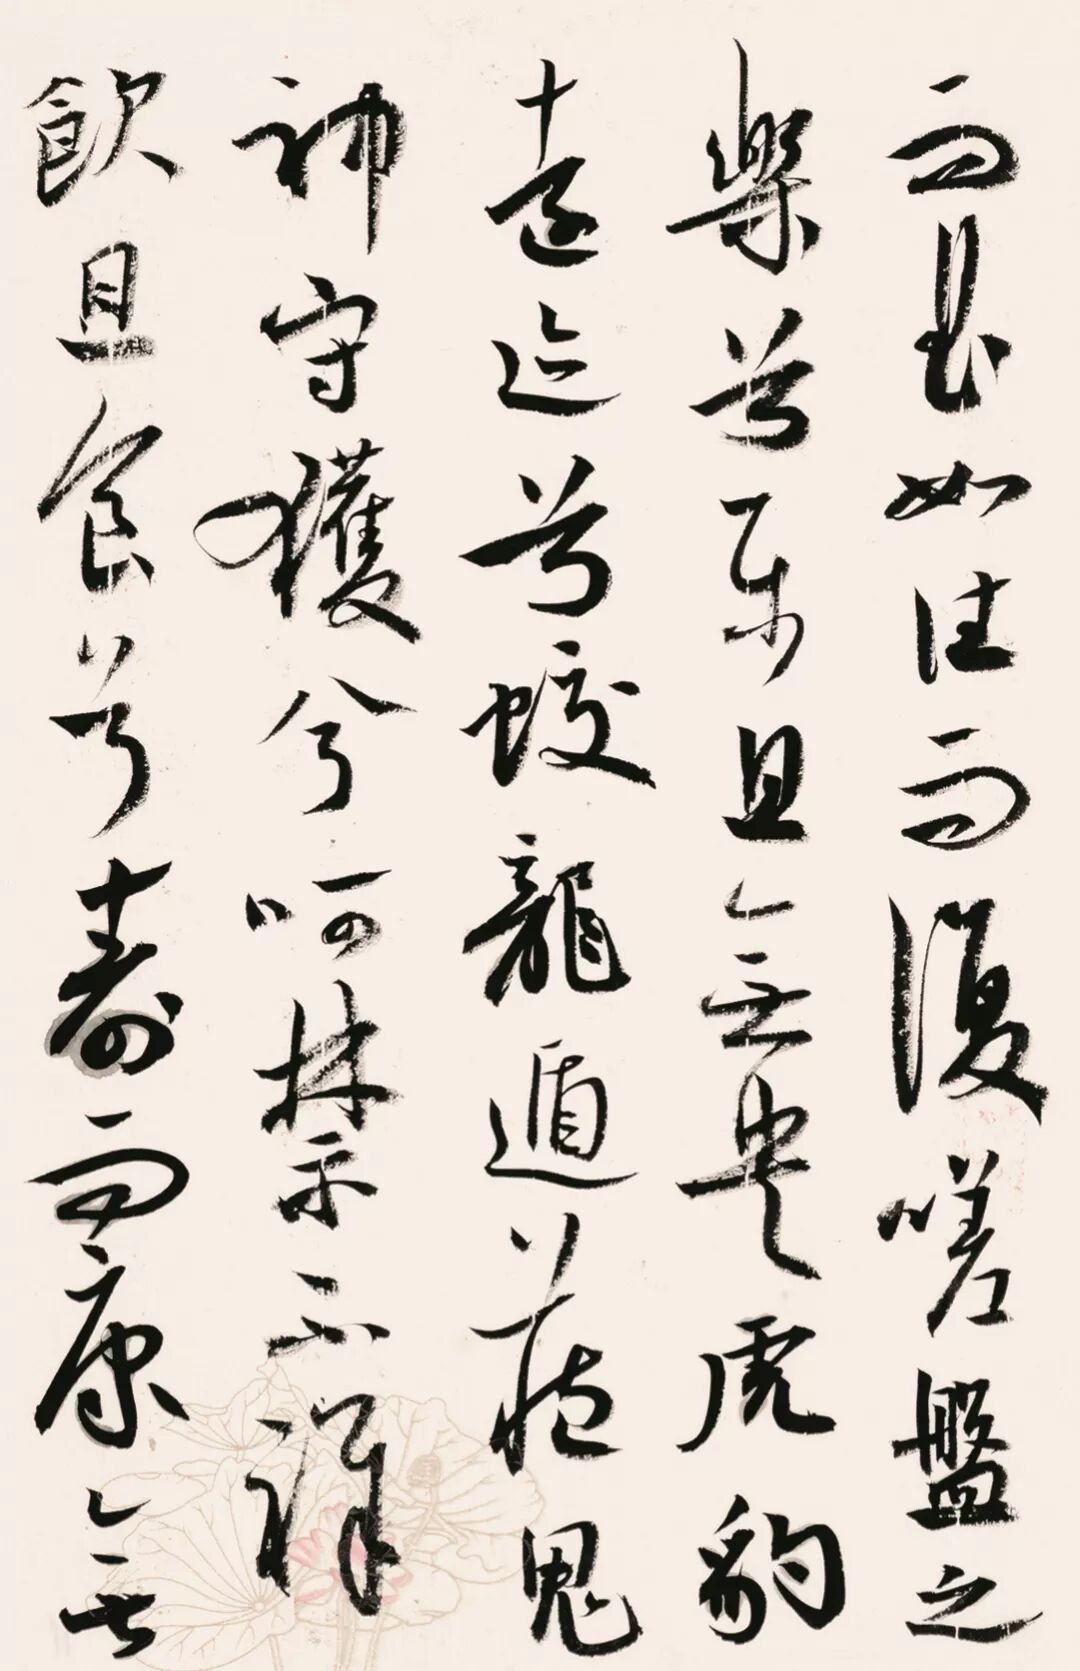 而曲如往而復嗟盤之
樂兮乐且無央虎豹
遠迹兮蛟龍遁藏鬼
神守獲兮呵禁不祥
飲且食兮壽而康無